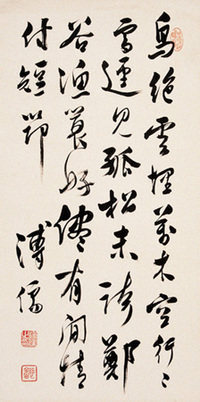 鳥絕雲埋萬木空行〻
雪逕見孤松未誇鄭
谷漁蓑好儘有閒情
付短筇
溥儒